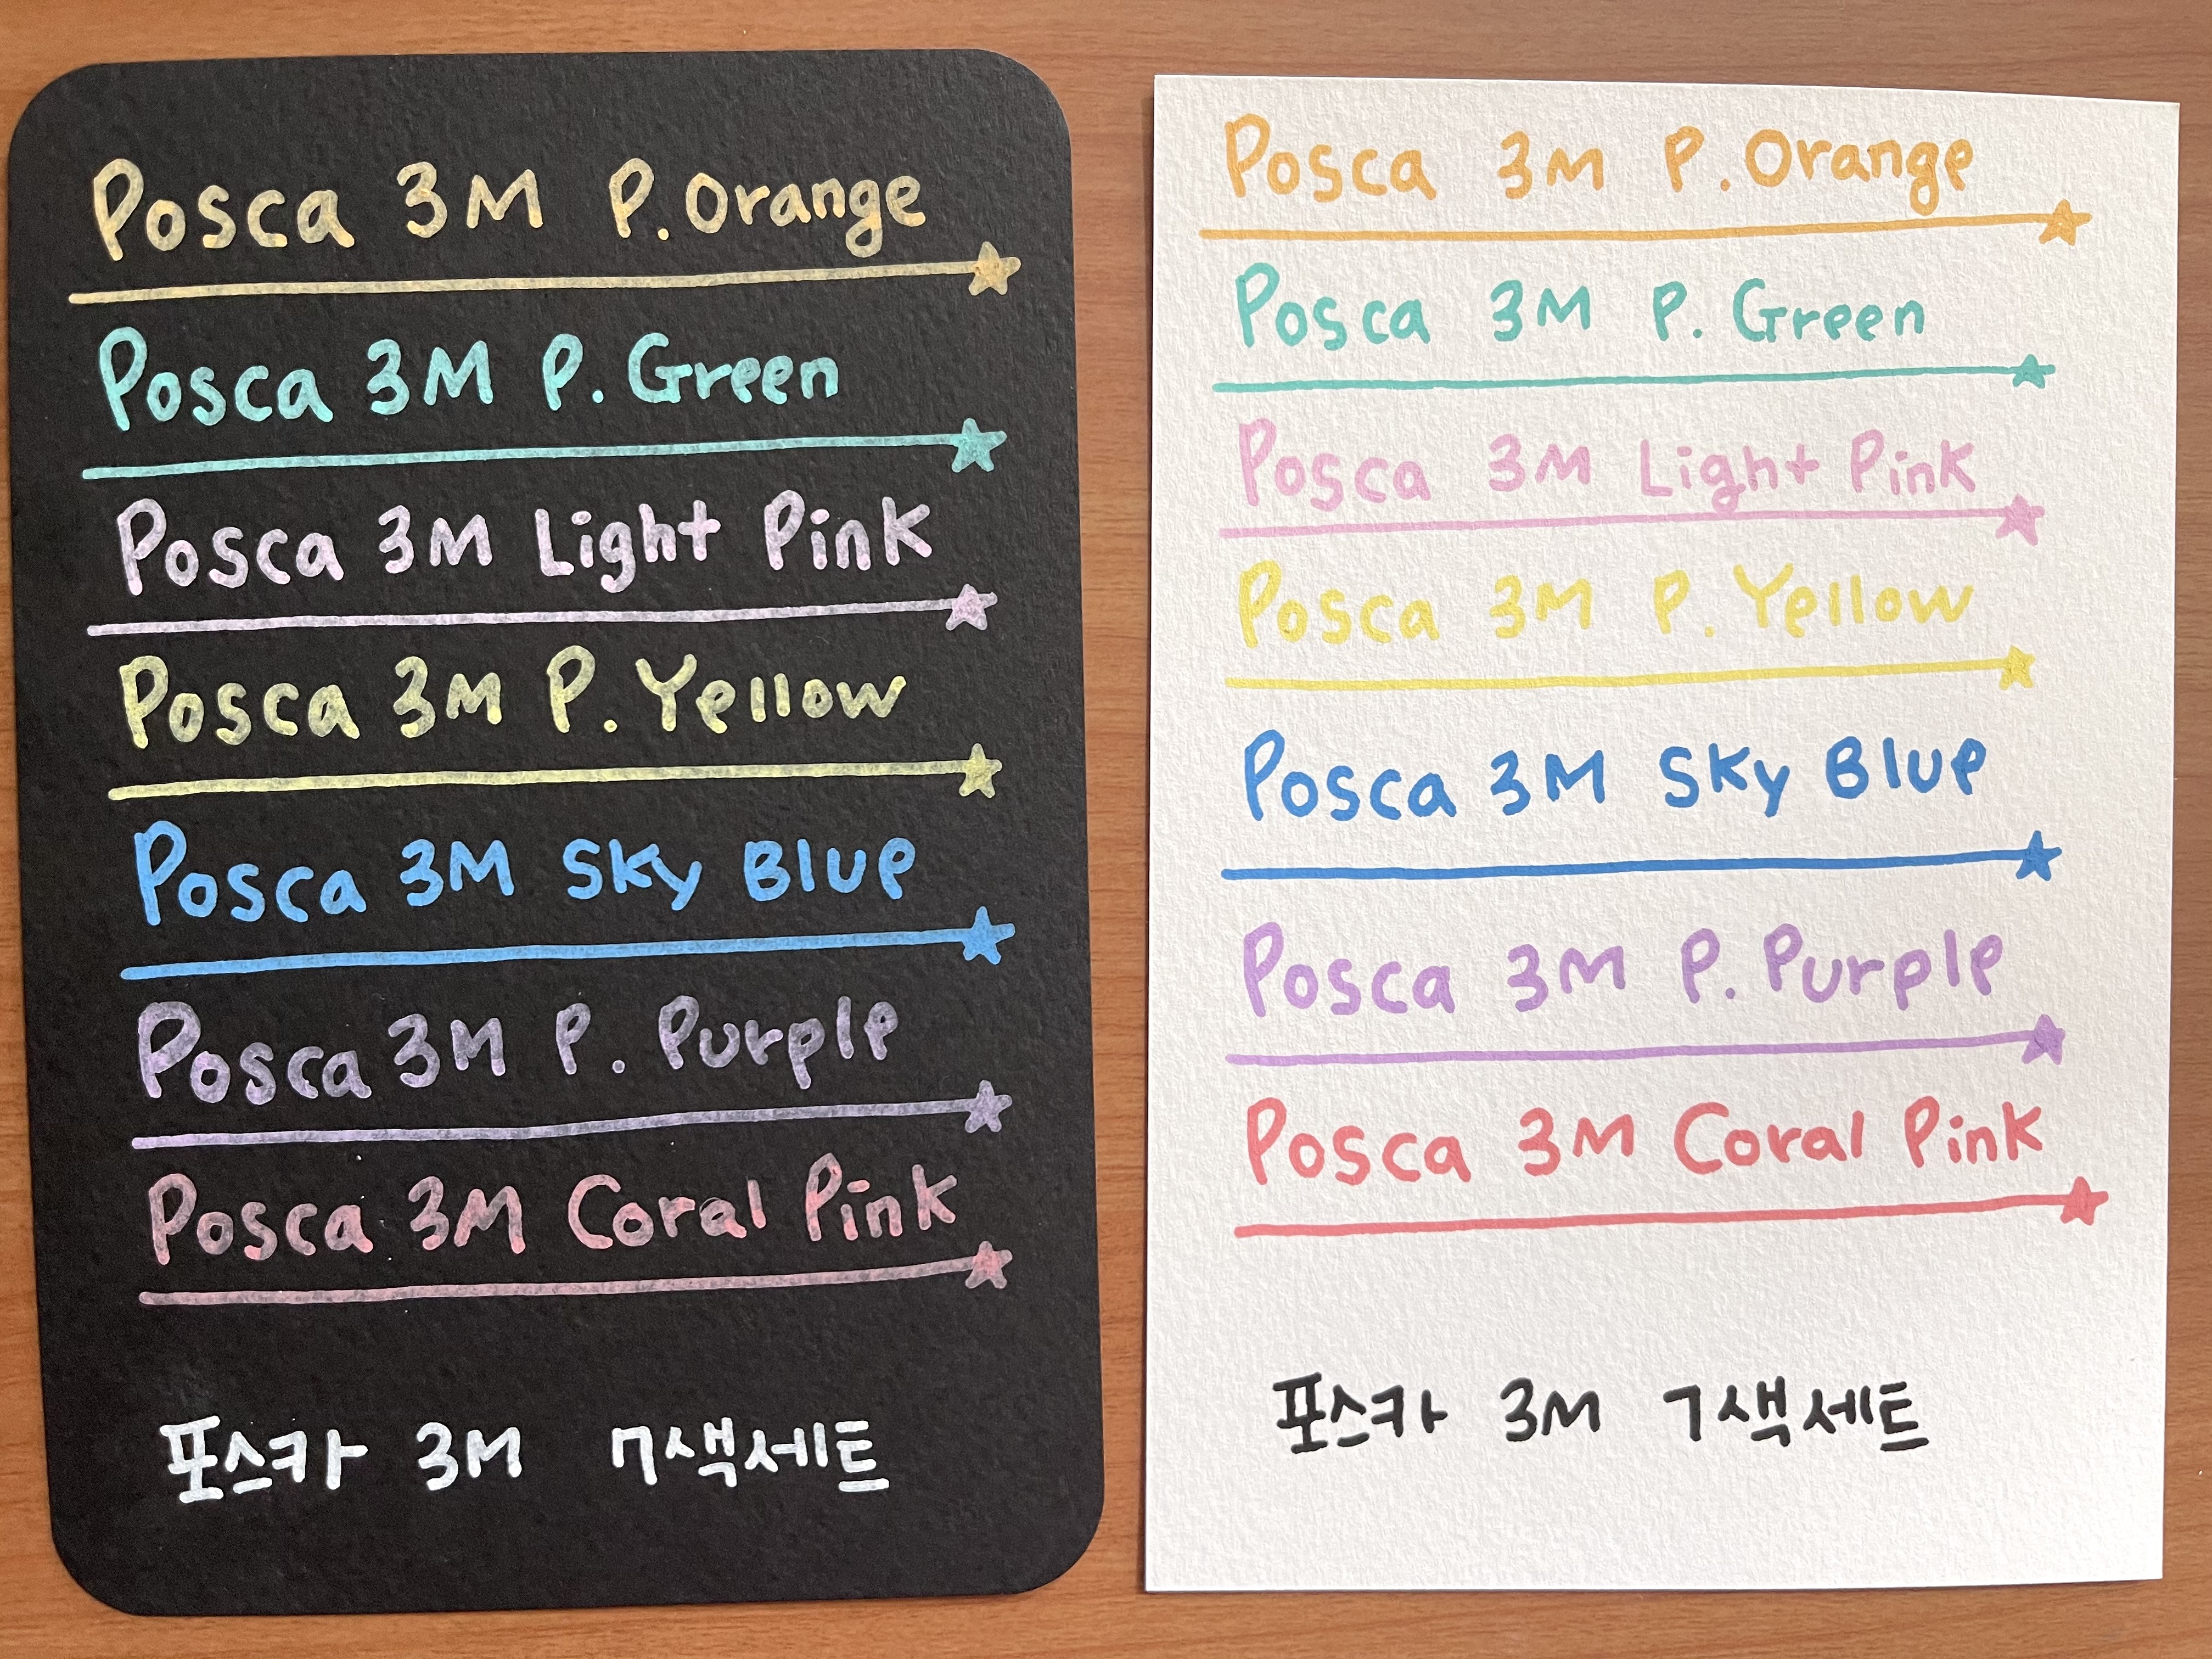 Posca 3M P.Orange
Posca 3M P. Green
Posca 3M Light Pink
Posca 3M P. Yellow
Posca 3M Sky Blue
Posca 3M P. Purple
Posca 3M Coral Pink
포스카 3M 7색세트
Posca 3M P. Orange
Posca 3M P. Green
Posca 3M Light Pink
Posca 3M P. Yellow
Posca 3M Sky Blue
Posca 3M P. Purple
Posca 3M Coral Pink
포스카 3M 7색세트